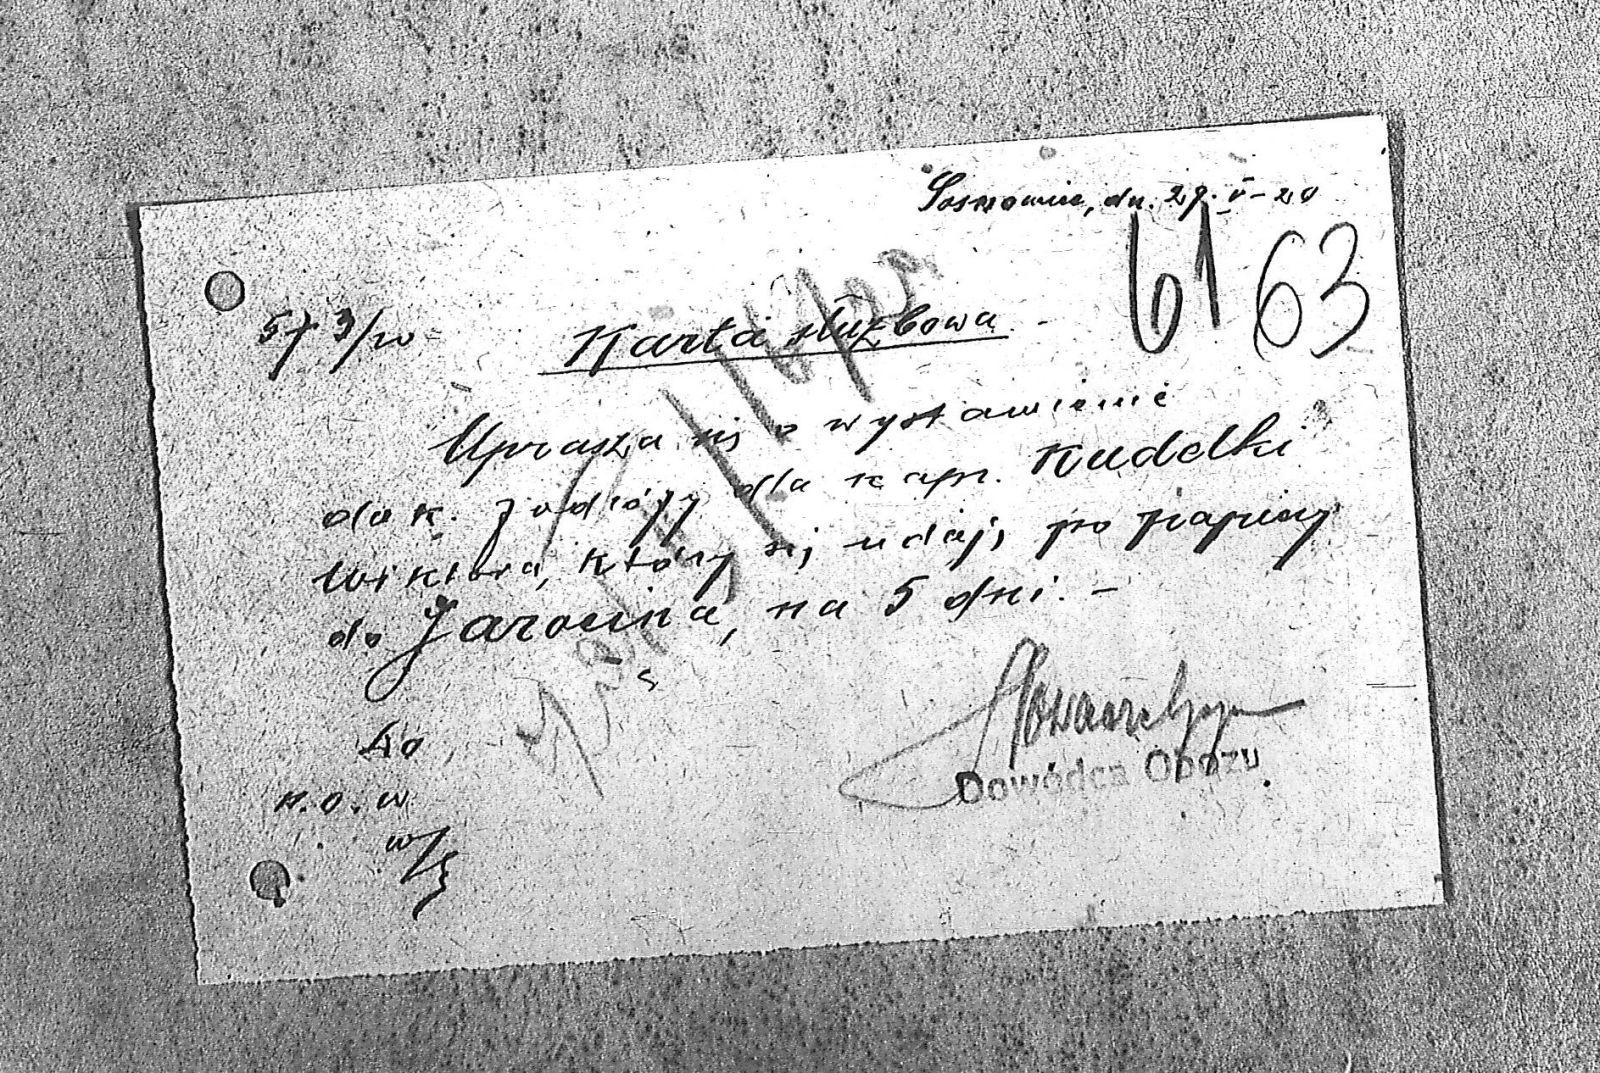 Sosnowiec, dn. 27. V - 20
61 63
573/20 Karta służbowa -
Uprasza się o wystawienie
dok. podróży dla kapr. Kudelki
Wiktora, który się udaje po papiery
do Jarocina, na 5 dni. -
Do
P.O.W.
w/s
Dowódca Obozu.